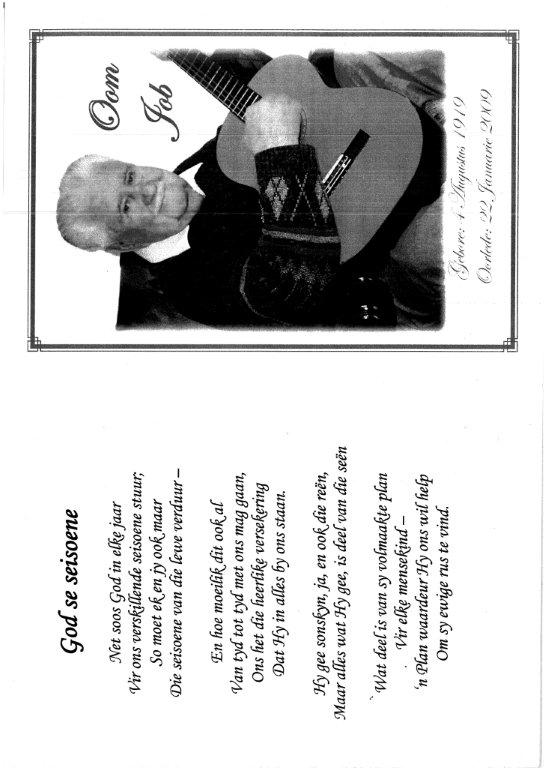 God se seisoene
Net soos God in elke jaar
Vir ons verskillende seisoene stuur;
So moet ek en jy ook maar
Die seisoene van die lewe verduur –
En hoe moeilik dit ook al
Van tyd tot tyd met ons mag gaan,
Ons het die heerlike versekering
Dat Hy in alles by ons staan.
Hy gee sonskyn, ja, en ook die reën,
Maar alles wat Hy gee, is deel van die seën
` Wat deel is van sy volmaakte plan
Vir elke mensekind –
‘n Plan waardeur Hy ons wil help
Om sy ewige rus te vind.
Oom
Job
Gebore: 4 Augustus 1919
Oorlede: 22 Januarie 2009